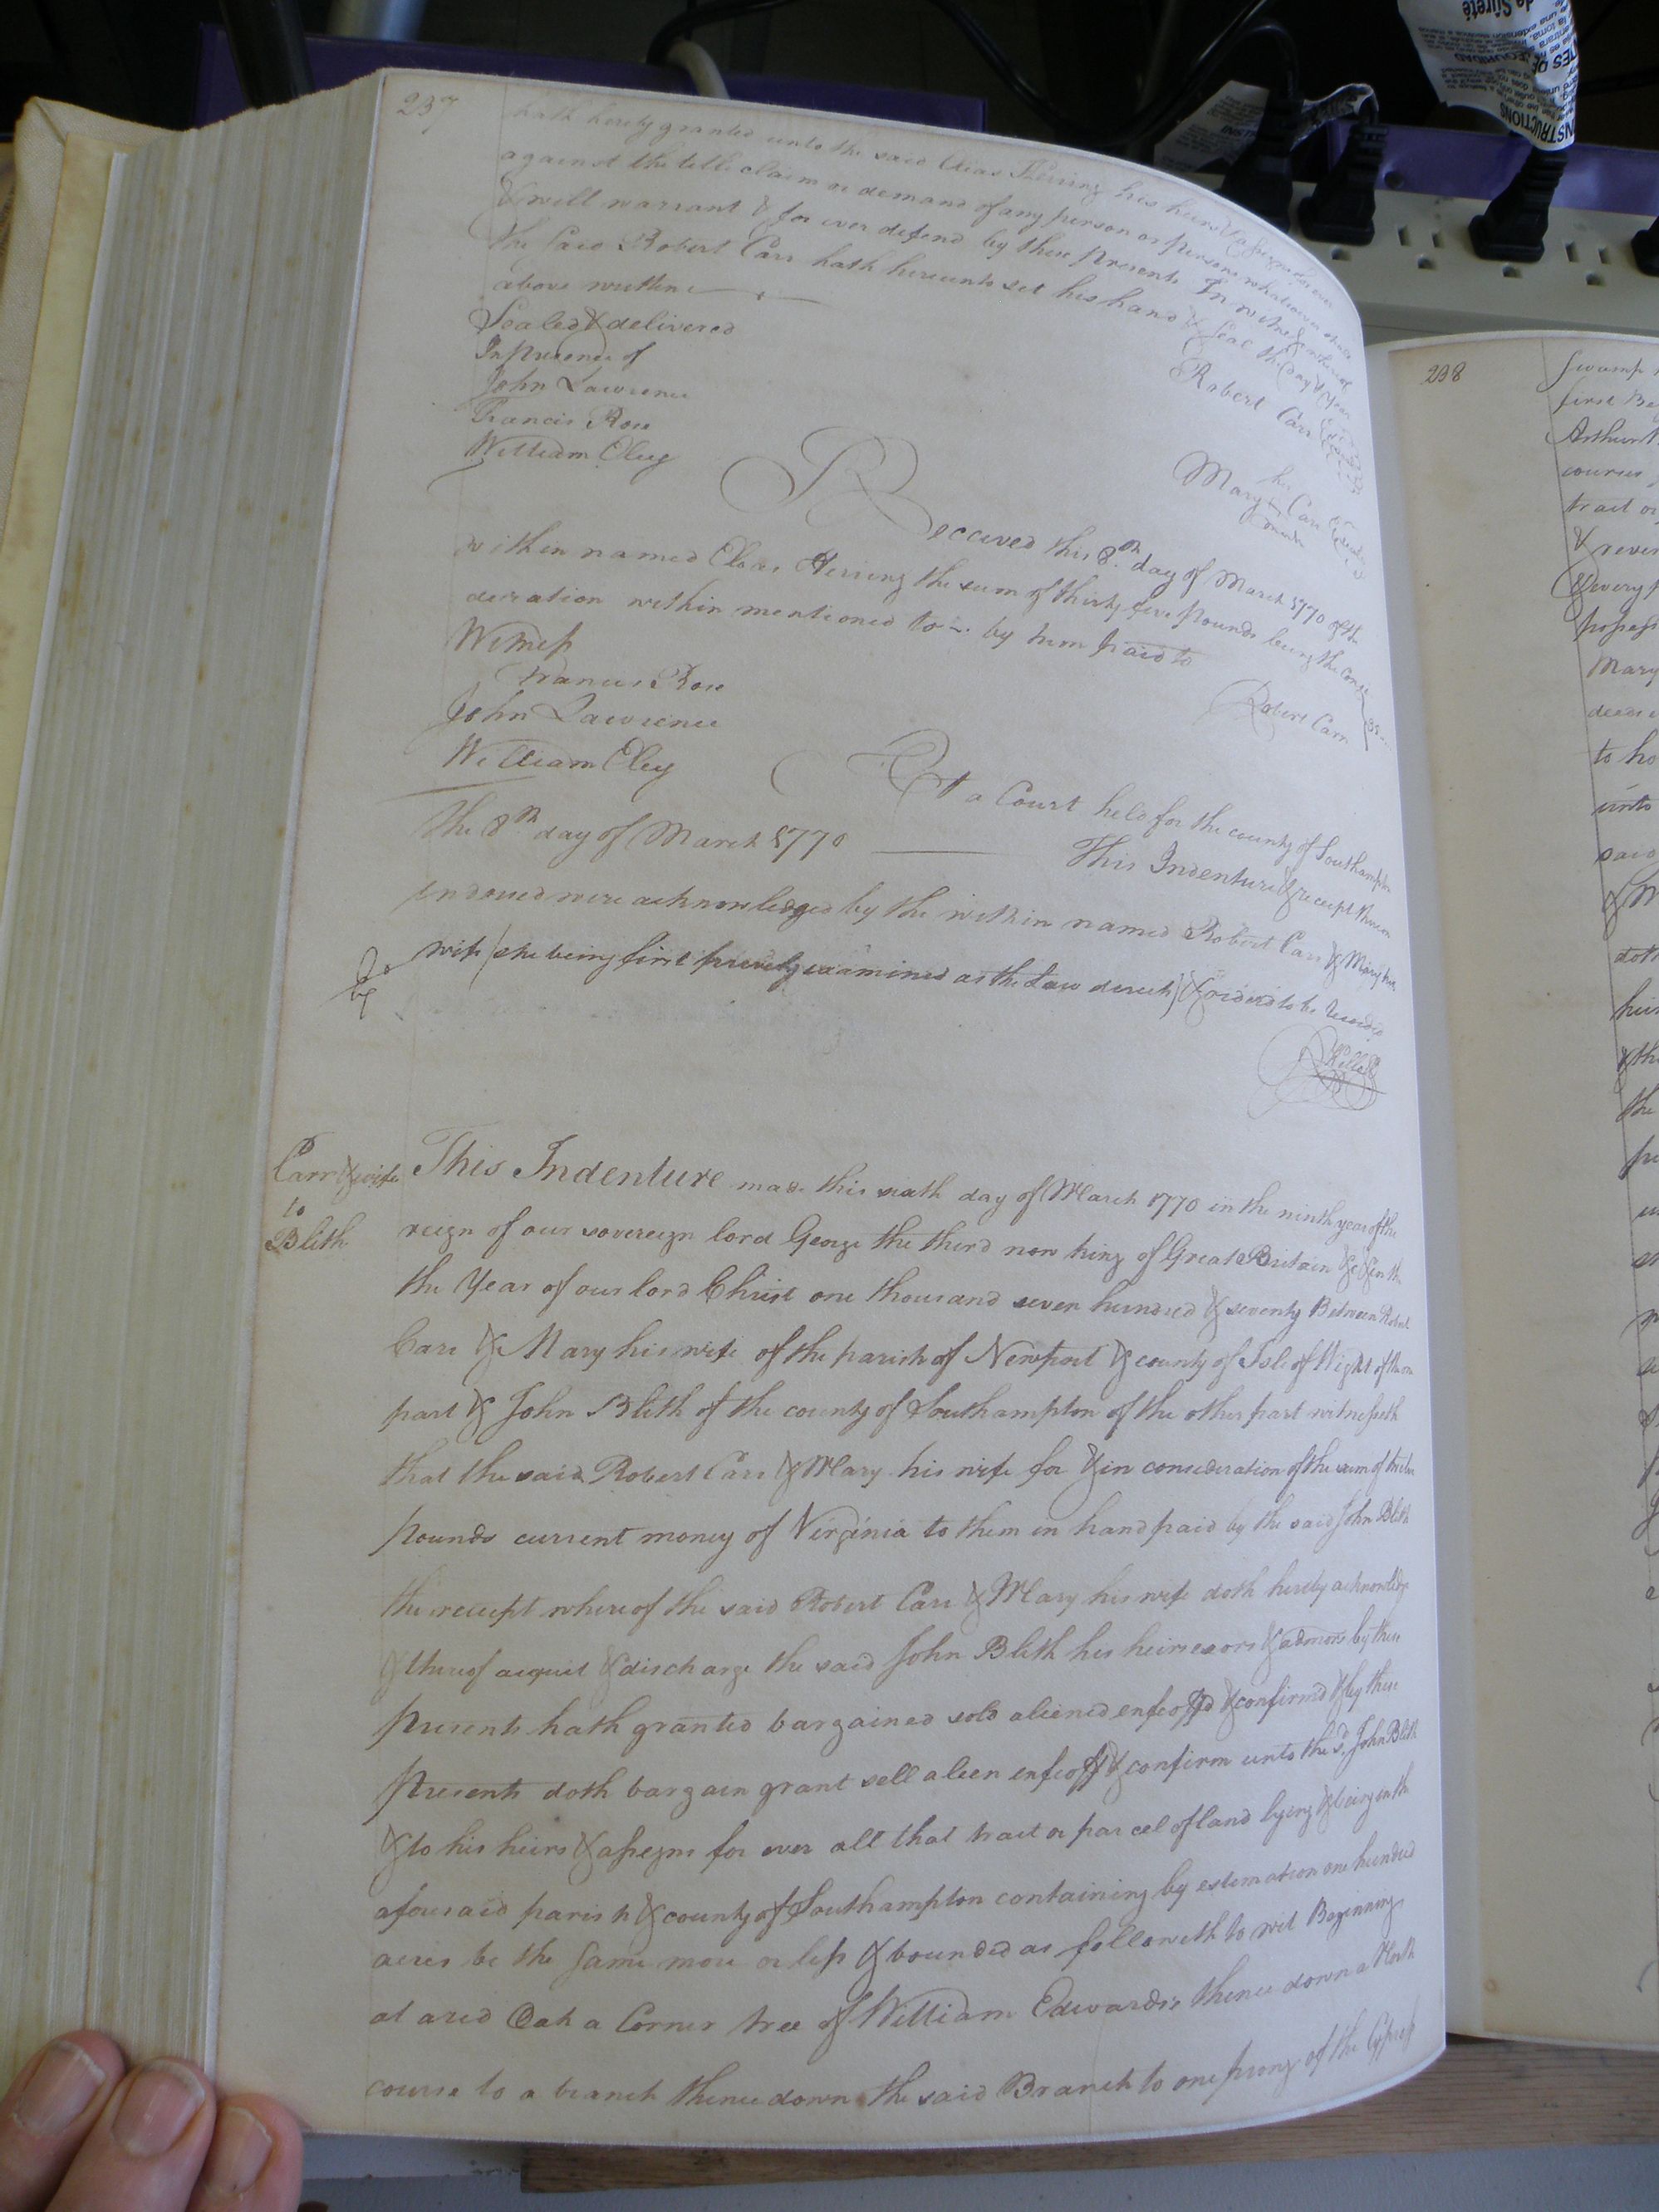 237
hath hereby granted unto the said Elias Herring his heirs & assigns for ever
against the title claim or demand of any person or persons whatsoever shall
& will warrant & for ever defend by these presents In witness whereof
the said Robert Carr hath hereunto set his hand & seal the day & year
above written
Sealed & delivered
In presence of
John Lawrence
Francis Rose
William Eley
Robert Carr
her
Mary Carr
mark
Received this 8th day of March 1770 of the
within named Elias Herring the sum of thirty five Pounds being the consi
deration within mentioned to by him paid to
Witness
Francis Rose
John Lawrence
William Eley
Robert Carr
At a Court held for the county of Southampton
the 8th day of March 1770
This Indenture & receipt thereon
indorsed were acknowledged by the within named Robert Carr & Mary his
wife (she being first privily examined as the Law directs) & ordered to be Recorded
Carr & wife
to
Blith
This Indenture made this sixth day of March 1770 in the ninth year of the
reign of our sovereign lord George the third now king of Great Britain &c & in the
the Year of our lord Christ one thousand seven hundred & seventy Between Robert
Carr & Mary his wife of the parish of Newport & county of Isle of Wight of the one
part & John Blith of the county of Southampton of the other part witnesseth
that the said Robert Carr & Mary his wife for & in consideration of the sum of twelve
Pounds current money of Virginia to them in hand paid by the said John Blith
the receipt whereof the said Robert Carr & Mary his wife doth hereby acknowledge
& thereof acquit & discharge the said John Blith his heirs exors & admors by these
presents hath granted bargained sold aliened enfeoffd & confirmed & by these
Presents doth bargain grant sell alien enfeoff & confirm unto the sd. John Blith
& to his heirs & assigns for ever all that tract or parcel of land lying & being in the
aforesaid parish & county of Southampton containing by estimation one hundred
acres be the same more or less & bounded as followeth to wit Beginning
at a red Oak a Corner tree of William Edwards's thence down a North
course to a branch thence down the said Branch to one prong of the Cypress
238
swamp
first Be
Arthur
courses
tract or
& rever
& every p
possess
Mary
deeds
to ho
unto
said
& M
doth
heirs
& the
the